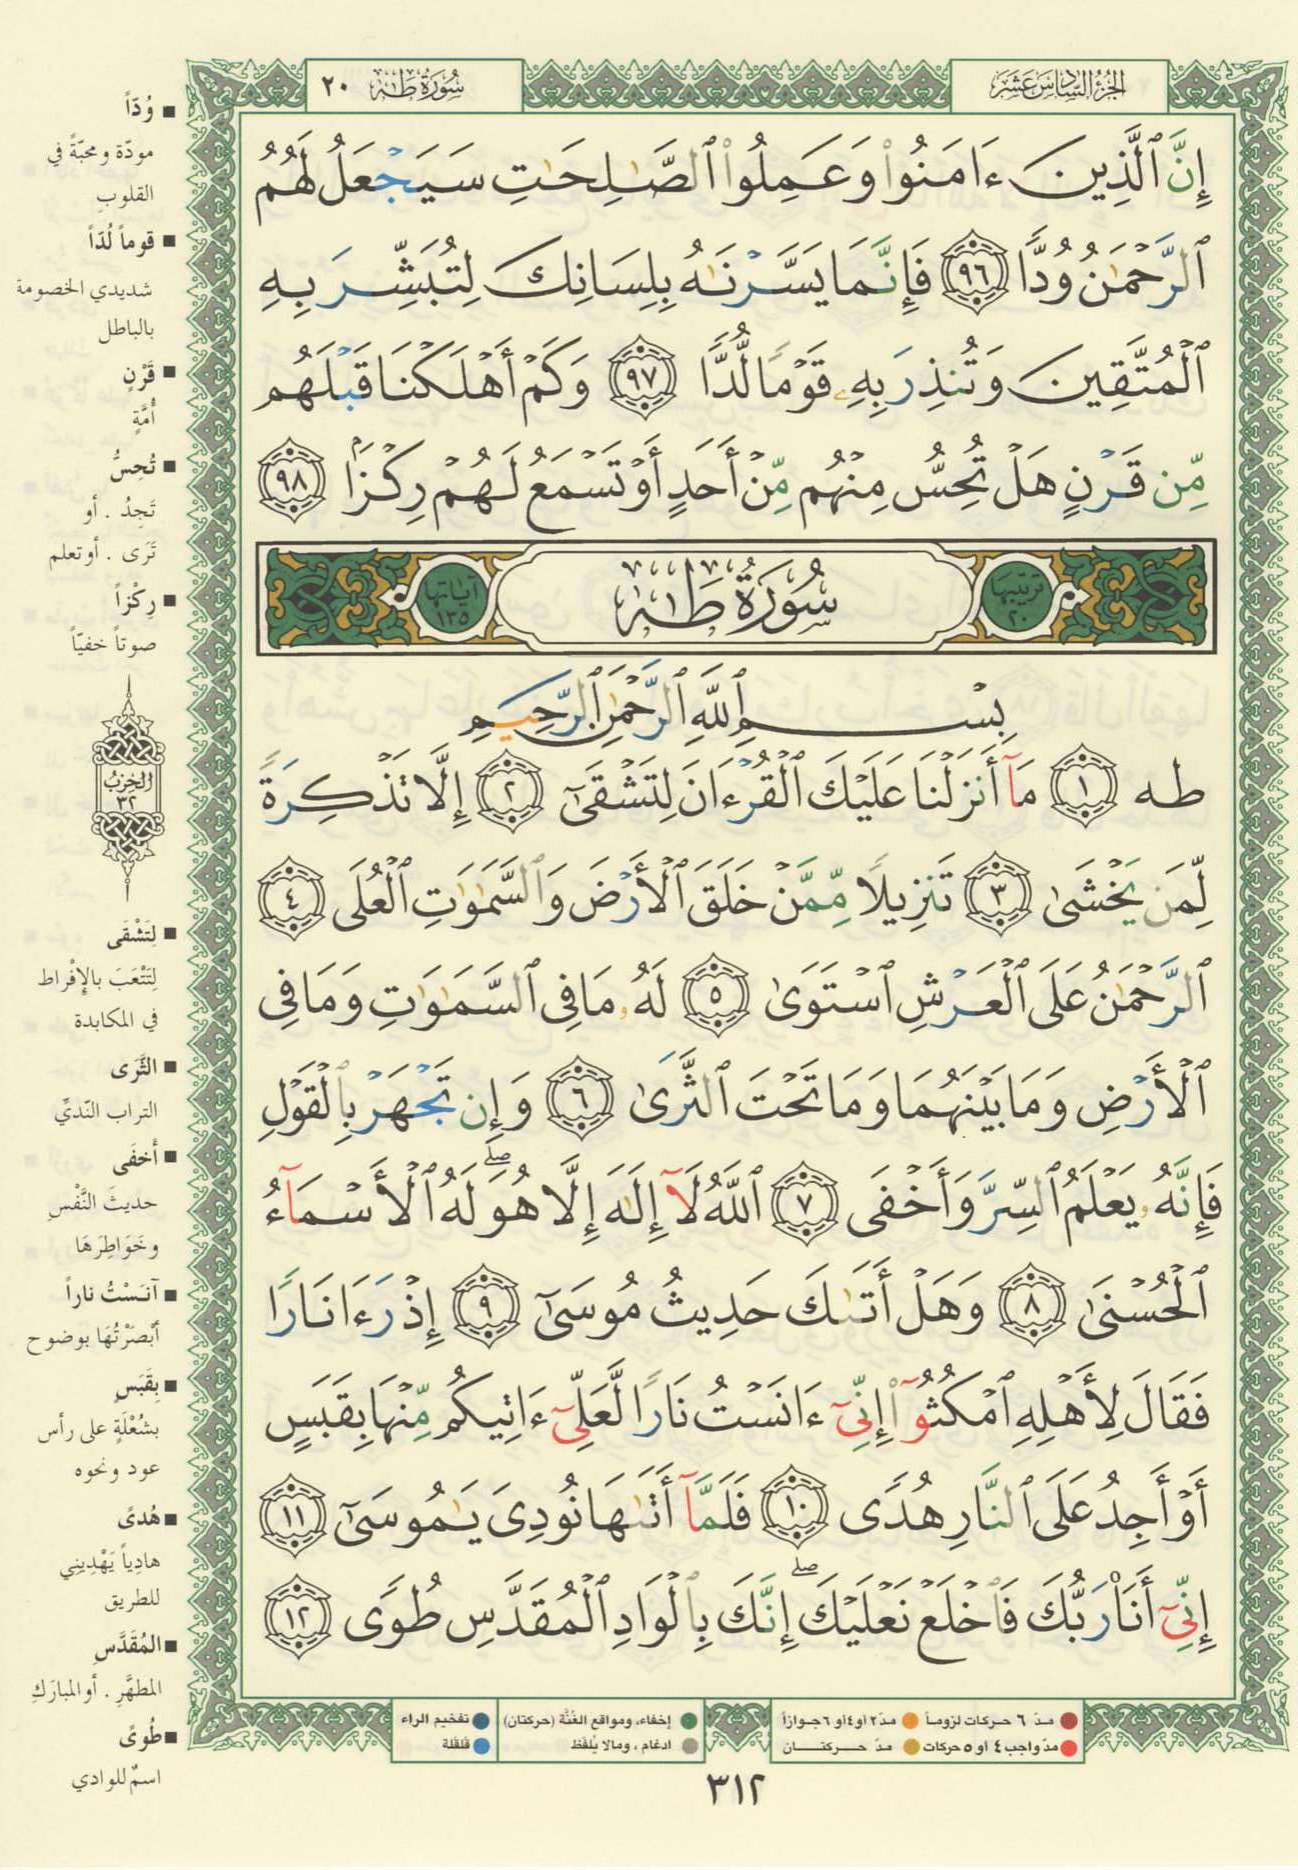 الجزء السادس عشر
سورة طه ٢٠
إِنَّ ٱلَّذِينَ ءَامَنُوا۟ وَعَمِلُوا۟ ٱلصَّٰلِحَٰتِ سَيَجْعَلُ لَهُمُ
ٱلرَّحْمَٰنُ وُدًّا ٩٦ فَإِنَّمَا يَسَّرْنَٰهُ بِلِسَانِكَ لِتُبَشِّرَ بِهِ
ٱلْمُتَّقِينَ وَتُنذِرَ بِهِۦ قَوْمًا لُّدًّا ٩٧ وَكَمْ أَهْلَكْنَا قَبْلَهُم
مِّن قَرْنٍ هَلْ تُحِسُّ مِنْهُم مِّنْ أَحَدٍ أَوْ تَسْمَعُ لَهُمْ رِكْزًۢا ٩٨
ترتيبها ٢٠
سُورَةُ طٰهٰ
آياتها ١٣٥
بِسْمِ ٱللَّهِ ٱلرَّحْمَٰنِ ٱلرَّحِيمِ
طه ١ مَآ أَنزَلْنَا عَلَيْكَ ٱلْقُرْءَانَ لِتَشْقَىٰٓ ٢ إِلَّا تَذْكِرَةً
لِّمَن يَخْشَىٰ ٣ تَنزِيلًا مِّمَّنْ خَلَقَ ٱلْأَرْضَ وَٱلسَّمَٰوَٰتِ ٱلْعُلَى ٤
ٱلرَّحْمَٰنُ عَلَى ٱلْعَرْشِ ٱسْتَوَىٰ ٥ لَهُۥ مَا فِى ٱلسَّمَٰوَٰتِ وَمَا فِى
ٱلْأَرْضِ وَمَا بَيْنَهُمَا وَمَا تَحْتَ ٱلثَّرَىٰ ٦ وَإِن تَجْهَرْ بِٱلْقَوْلِ
فَإِنَّهُۥ يَعْلَمُ ٱلسِّرَّ وَأَخْفَى ٧ ٱللَّهُ لَآ إِلَٰهَ إِلَّا هُوَ ۖ لَهُ ٱلْأَسْمَآءُ
ٱلْحُسْنَىٰ ٨ وَهَلْ أَتَىٰكَ حَدِيثُ مُوسَىٰٓ ٩ إِذْ رَءَا نَارًا
فَقَالَ لِأَهْلِهِ ٱمْكُثُوٓا۟ إِنِّىٓ ءَانَسْتُ نَارًا لَّعَلِّىٓ ءَاتِيكُم مِّنْهَا بِقَبَسٍ
أَوْ أَجِدُ عَلَى ٱلنَّارِ هُدًى ١٠ فَلَمَّآ أَتَىٰهَا نُودِىَ يَٰمُوسَىٰٓ ١١
إِنِّىٓ أَنَا۠ رَبُّكَ فَٱخْلَعْ نَعْلَيْكَ ۖ إِنَّكَ بِٱلْوَادِ ٱلْمُقَدَّسِ طُوًى ١٢
وُدّاً
مودّة ومحبّةً في
القلوبِ
قوماً لُدّاً
شديدي الخصومة
بالباطل
قَرْنٍ
أُمَّةٍ
تُحِسُّ
تَجِدُ . أو
تَرَى . أو تعلم
رِكْزاً
صوتاً خفيّاً
الحزب
٣٢
لِتَشْقى
لِتَتْعَبَ بالإفْراط
في المكابدة
الثَّرَى
التراب النّديِّ
أخفَى
حديثَ النَّفْسِ
وخَوَاطِرَهَا
آنَسْتُ ناراً
أبْصَرْتُهَا بوضوح
بِقَبَسٍ
بشُعْلَةٍ على رأس
عود ونحوه
هُدىً
هادِياً يَهْدِيني
للطريق
المُقَدَّسِ
المطهَّرِ . أو المبارَكِ
طُوىً
اسمٌ للوادي
مدّ ٦ حركات لزوماً مدّ ٢ او ٤ او ٦ جوازاً
مدّ واجب ٤ او ٥ حركات مدّ حركتان
إخفاء، ومواقع الغُنَّة (حركتان) تفخيم الراء
ادغام ، ومالا يُلفَظ قلقلة
٣١٢